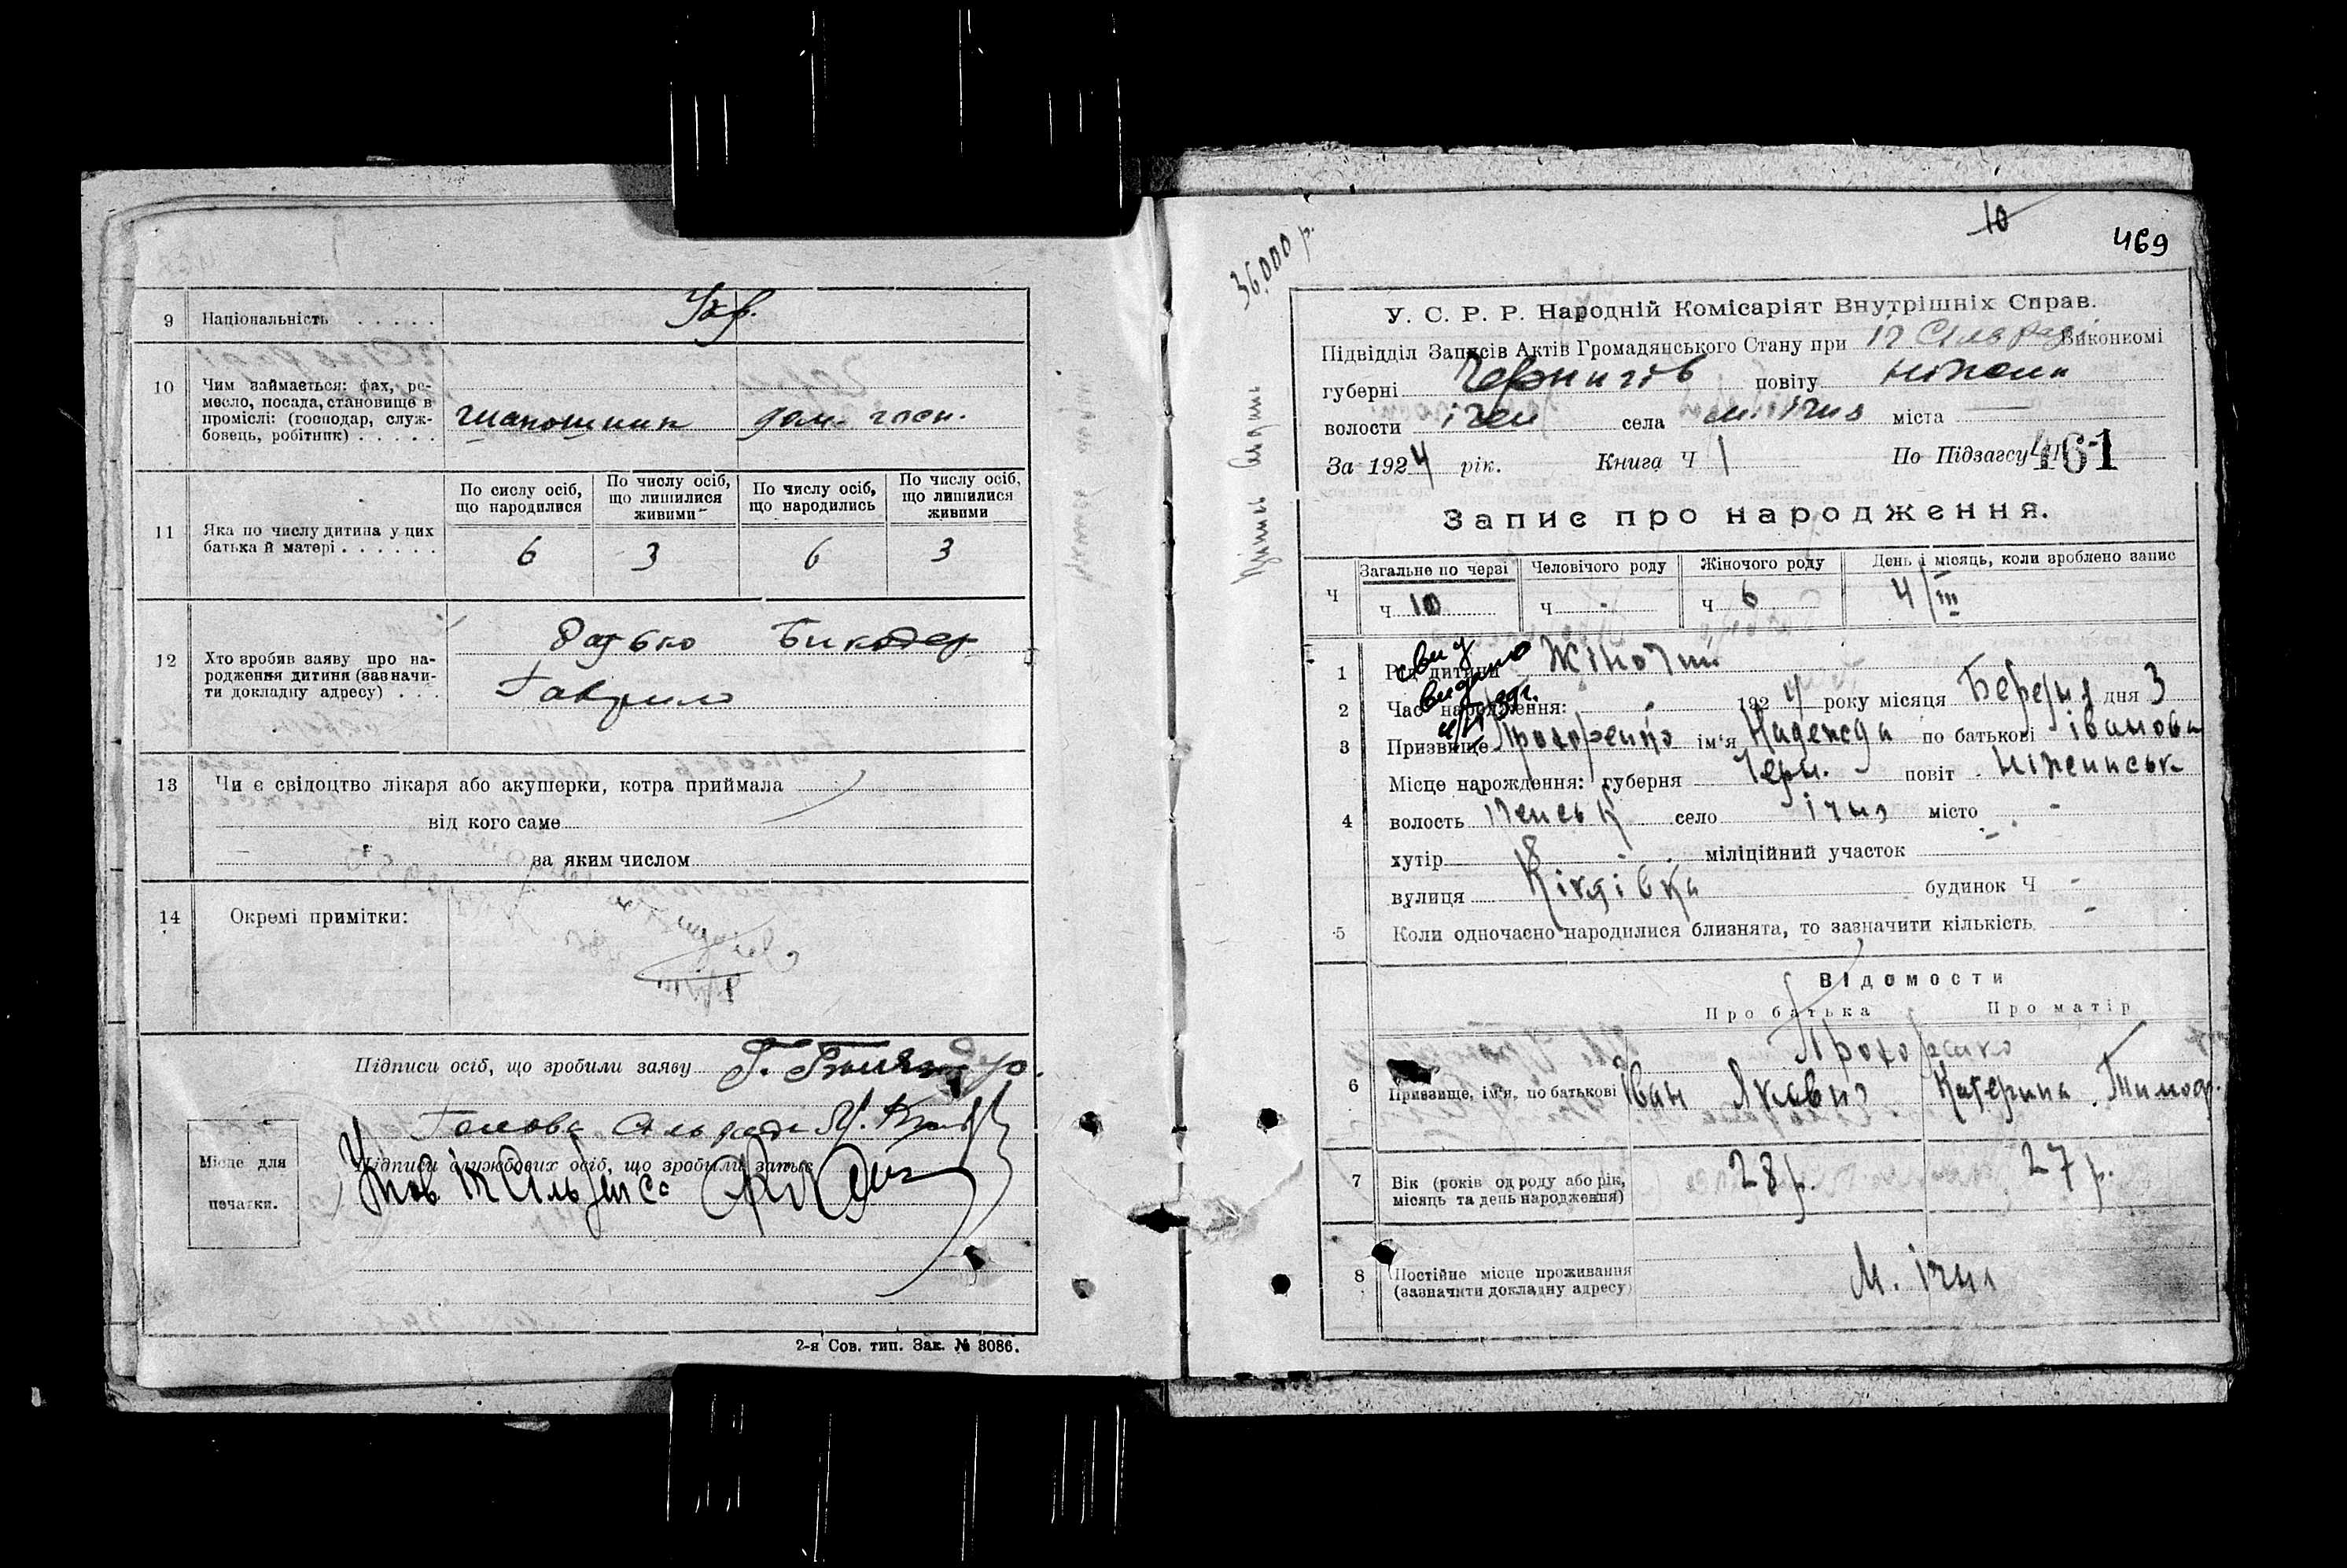 9 Національність Укр.
10 Чим займається: фах, ре-
месло, посада, становище в
проміслі: (господар, служ-
бовець, робітник) шапошник дом. госп.
11 Яка по числу дитина у цих
батька й матері
По сислу осіб,
що народилися
По числу осіб,
що лишилися
живими
По числу осіб,
що народились
По числу осіб,
що лишилися
живими
6 3 6 3
12 Хто зробив заяву про на-
родження дитини (зазначи-
ти докладну адресу)
Батько
Гаврило
13 Чи є свідоцтво лікаря або акушерки, котра приймала
від кого саме
за яким числом
14 Окремі примітки:
Підписи осіб, що зробили заяву Г.
Голова Сільради
Підписи службових осіб, що зробили запис
Місце для
печатки.
2-я Сов. тип. Зак. № 3086.
36,000 р.
10
469
У. С. Р. Р. Народній Комісаріят Внутрішніх Справ.
Підвідділ Записів Актів Громадянського Стану при Іч Сільраді Виконкомі
губерні Чернигів повіту Ніжен
волости Ічен села м. Ічня міста
За 1924 рік. Книга Ч 1 По Підзагсу Ч 461
Запис про народження.
Ч
Загальне по черзі Человічого роду Жіночого роду День і місяць, коли зроблено запис
ч 10 ч - ч 6 4/III
1 Рід дитини Жіночий
свид
видано
2 Час народження: 1924 року місяця Березня дня 3
3 Призвище Прохоренко ім'я Надежда по батькові Іванова
4 Місце народження: губерня Черн. повіт Ніженськ
волость Іченськ село Ічня місто -
хутір міліційний участок
вулиця будинок Ч -
5 Коли одночасно народилися близнята, то зазначити кількість -
Відомости
Про батька Про матір
Прохоренко
6 Призвище, ім'я, по батькові Іван Якович Катерина Тимоф.
7 Вік (років од роду або рік,
місяць та день народження) 28 р. 27 р.
8 Постійне місце проживання
(зазначити докладну адресу) М. Ічня